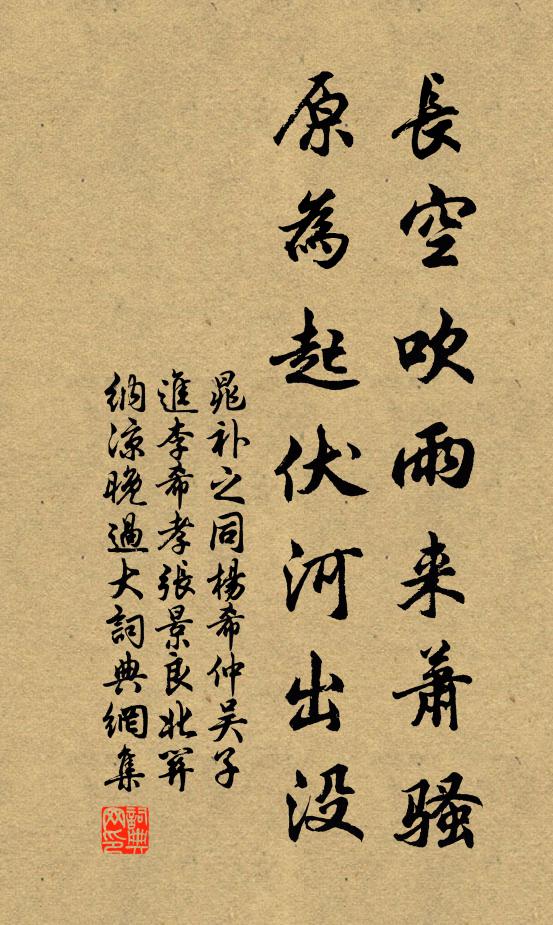 長空吹雨來蕭騷
原為起伏河出没
晁补之同楊希仲吴子
進李希孝張景良北桥
納涼晚過大詞典網集
詞典网印